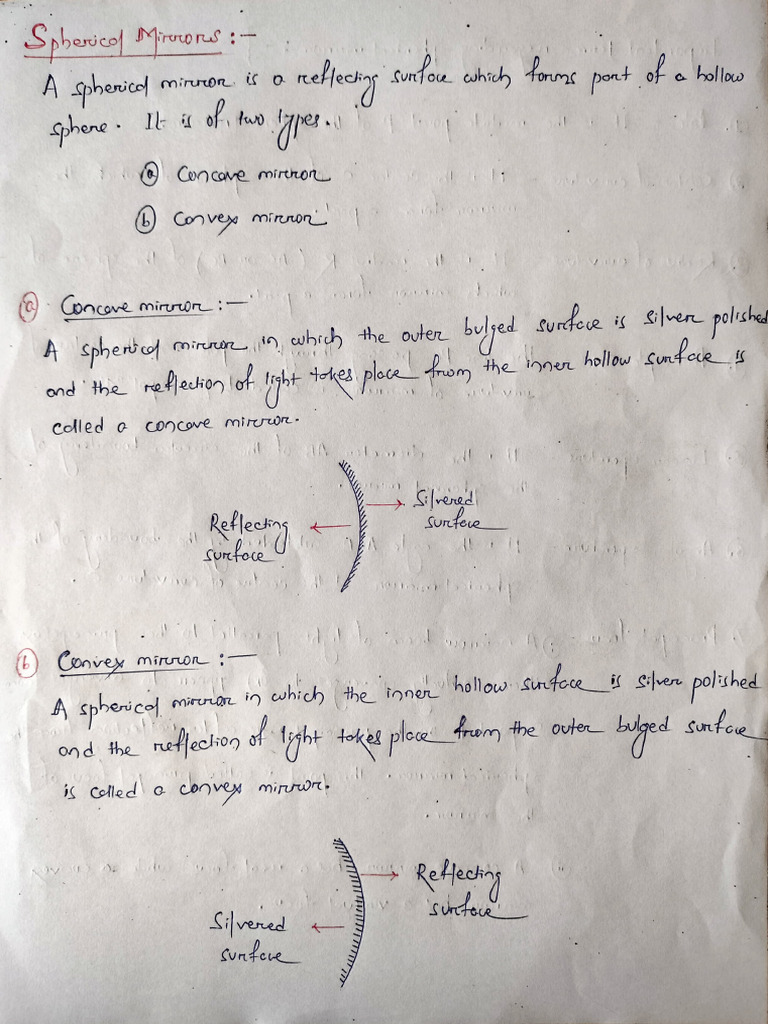 Spherical Mirrors :-
A spherical mirror is a reflecting surface which forms part of a hollow
sphere. It is of two types.
ⓐ Concave mirror
ⓑ Convex mirror
ⓐ Concave mirror :-
A spherical mirror in which the outer bulged surface is silver polished
and the reflection of light takes place from the inner hollow surface is
called a concave mirror.
Reflecting
surface
Silvered
surface
ⓑ Convex mirror :-
A spherical mirror in which the inner hollow surface is silver polished
and the reflection of light takes place from the outer bulged surface
is called a convex mirror.
Reflecting
surface
Silvered
surface